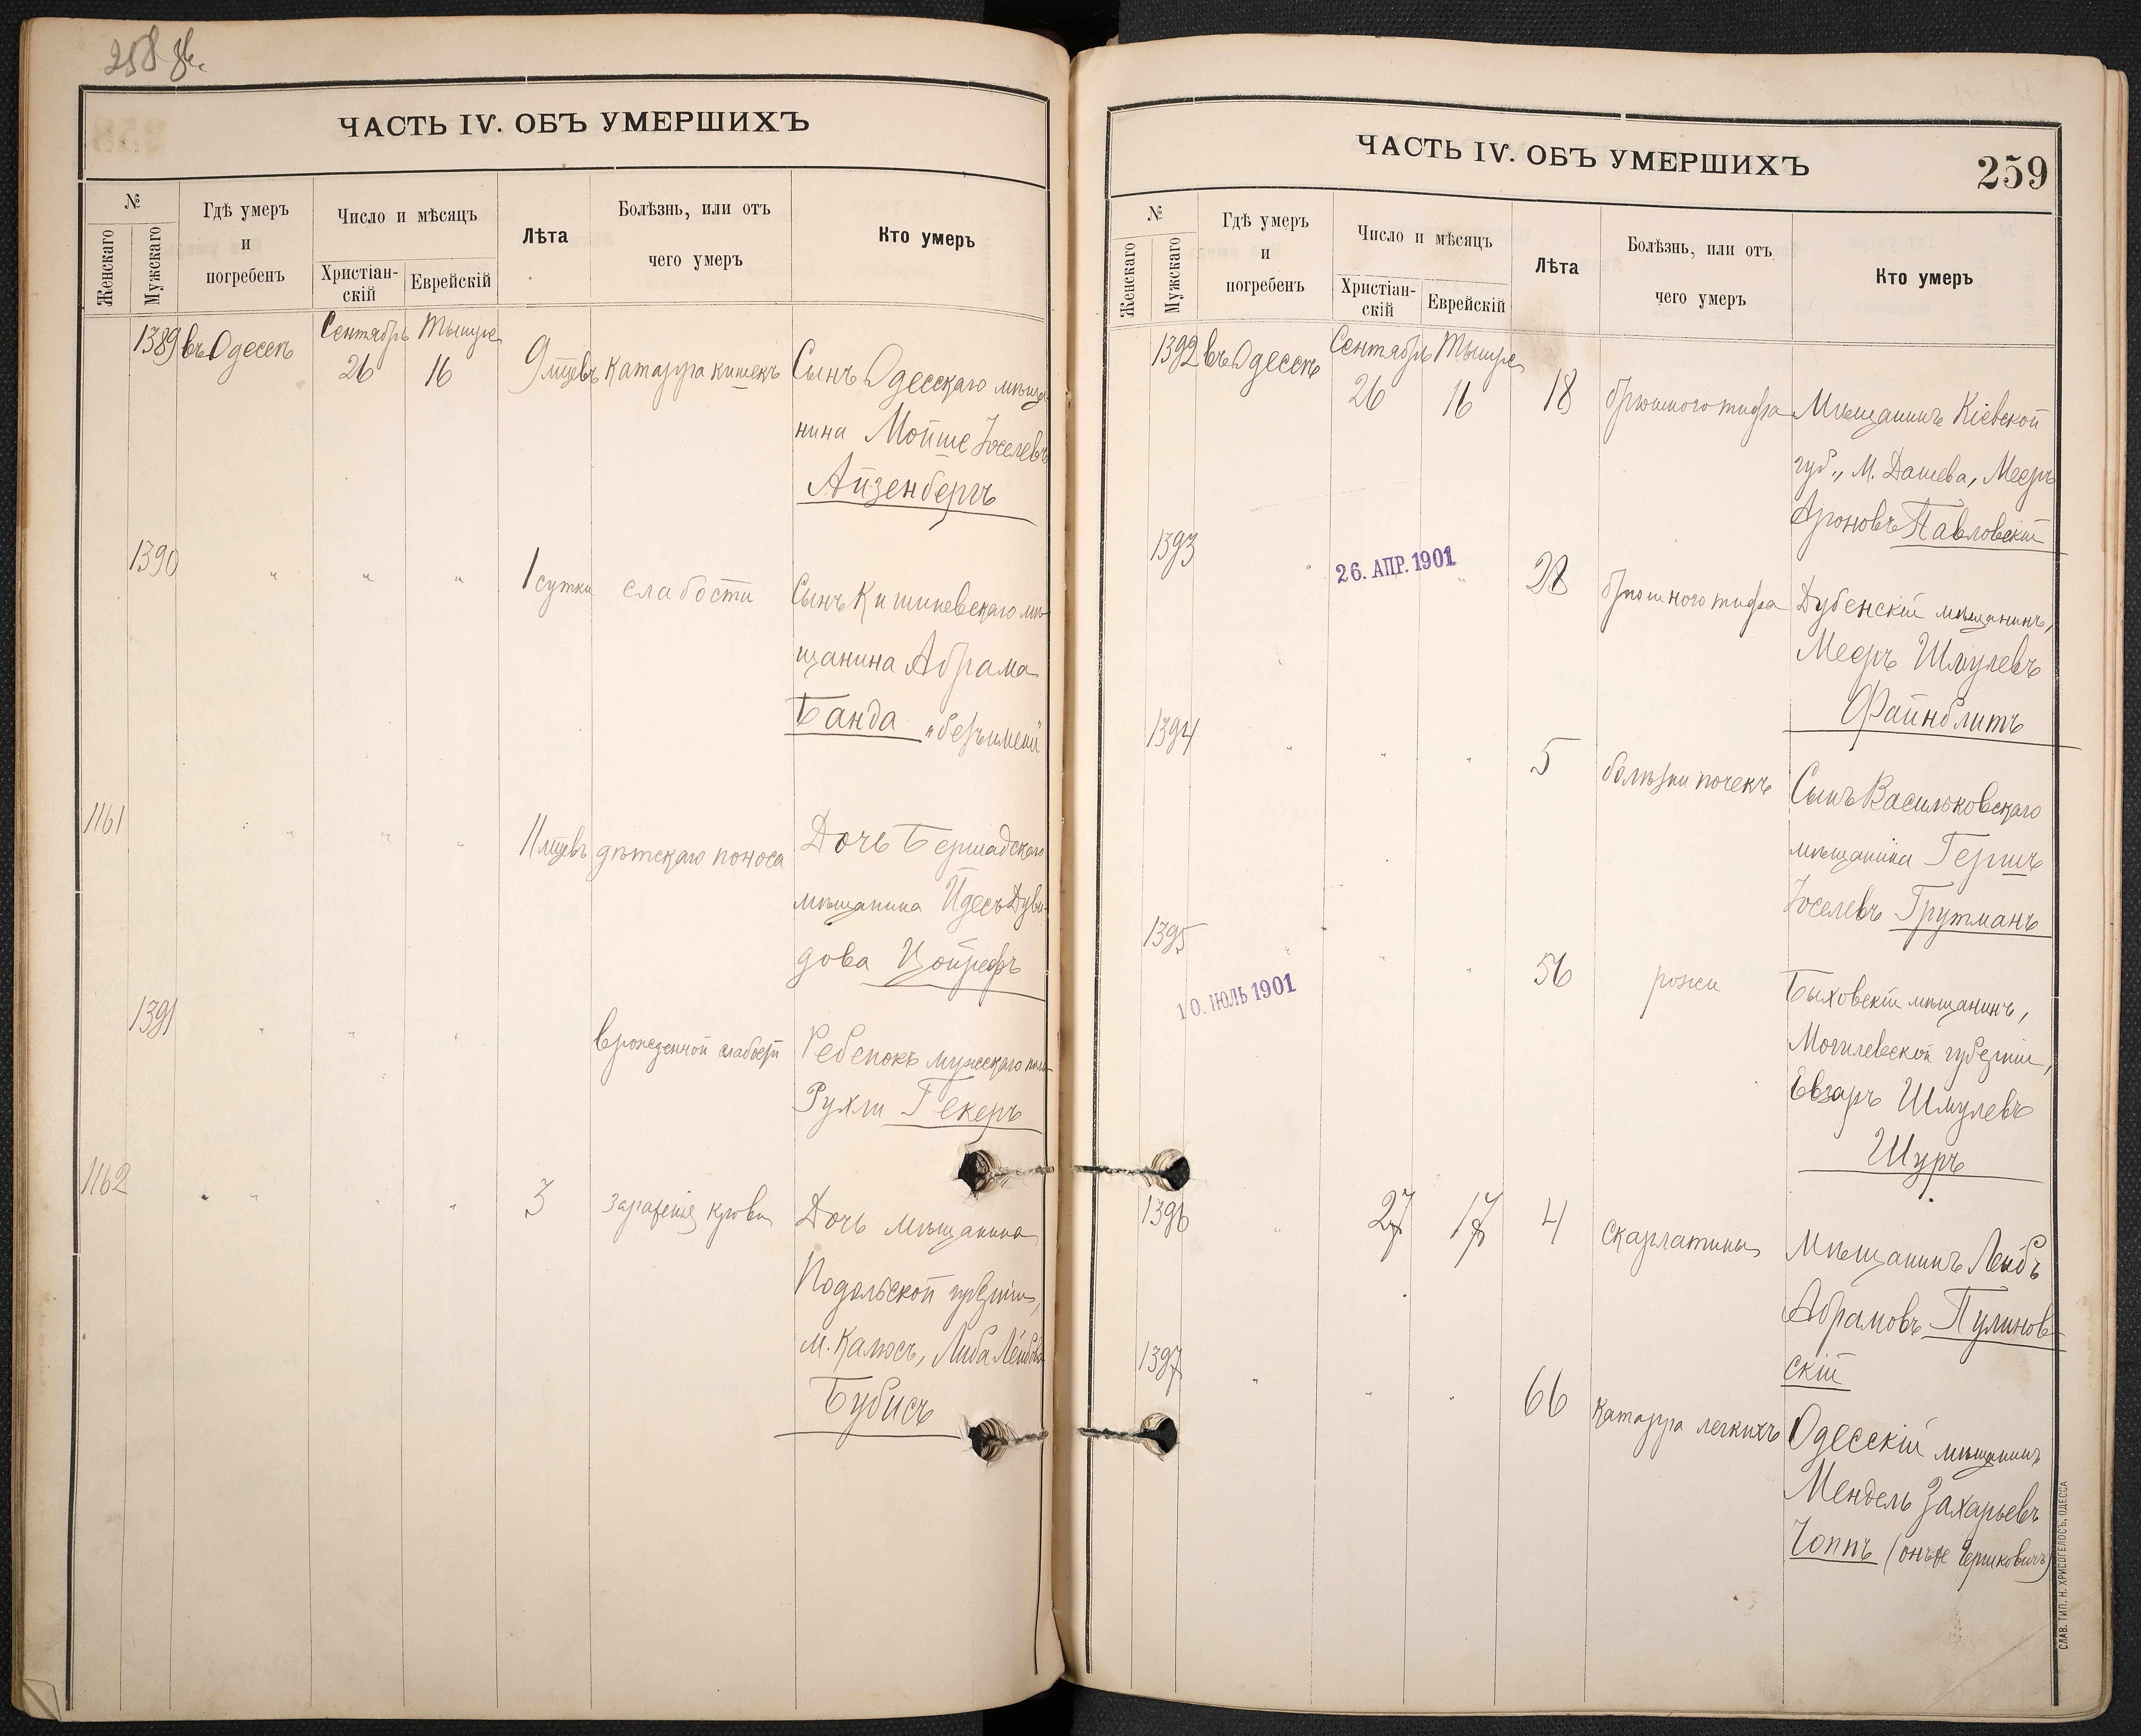 258
ЧАСТЬ IV. ОБЪ УМЕРШИХЪ
№
Женскаго
Мужскаго
Гдѣ умеръ
и
погребенъ
Число и мѣсяцъ
Христіан-
скій
Еврейскій
Лѣта
Болѣзнь, или отъ
чего умеръ
Кто умеръ
1389 въ Одессѣ Сентябрь Тышре
26 16 9 мцевъ катарра кишекъ Сынъ Одесскаго мѣща-
нина Мойше Іоселевъ
Айзенбергъ
1390 " " " 1 сутки слабости Сынъ Кишиневскаго мѣ-
щанина Абрама
Банда "безъ имени"
1161 " " " 11 мцевъ дѣтскаго поноса Дочь Бершадскаго
мѣщанина Идесъ Дуви-
дова Цойрефъ
1391 " " " врожденной слабости Ребенокъ мужскаго пола
Рухли Гекеръ
1162 " " " 3 зараженія крови Дочь мѣщанина
Подольской губерніи,
м. Калюсъ, Либа Лейбова
Бубисъ
ЧАСТЬ IV. ОБЪ УМЕРШИХЪ
259
№
Женскаго
Мужскаго
Гдѣ умеръ
и
погребенъ
Число и мѣсяцъ
Христіан-
скій
Еврейскій
Лѣта
Болѣзнь, или отъ
чего умеръ
Кто умеръ
1392 въ Одессѣ Сентябрь Тышре
26 16 18 брюшного тифа Мѣщанинъ Кіевской
губ., м. Дашева, Мееръ
Ароновъ Павловскій
1393 " 26. АПР. 1901 " 28 брюшного тифа Дубенскій мѣщанинъ,
Мееръ Шмулевъ
Файнблитъ
1394 " " " 5 болѣзни почекъ Сынъ Васильковскаго
мѣщанина Гершъ
Іоселевъ Грутманъ
1395 " " " 56 рожи Быховскій мѣщанинъ,
10. ІЮЛЬ 1901
Могилевской губерніи,
Евзаръ Шмулевъ
Шуръ
1396 " 27 17 4 скарлатины Мѣщанинъ Лейбъ
Абрамовъ Пулинов-
скій
1397 " " " 66 катарра легкихъ Одесскій мѣщанинъ
Мендель Захарьевъ
Чоппъ (онъ же Чериковичъ)
СЛАВ. ТИП. Н. ХРИСОГЕЛОСЪ, ОДЕССА